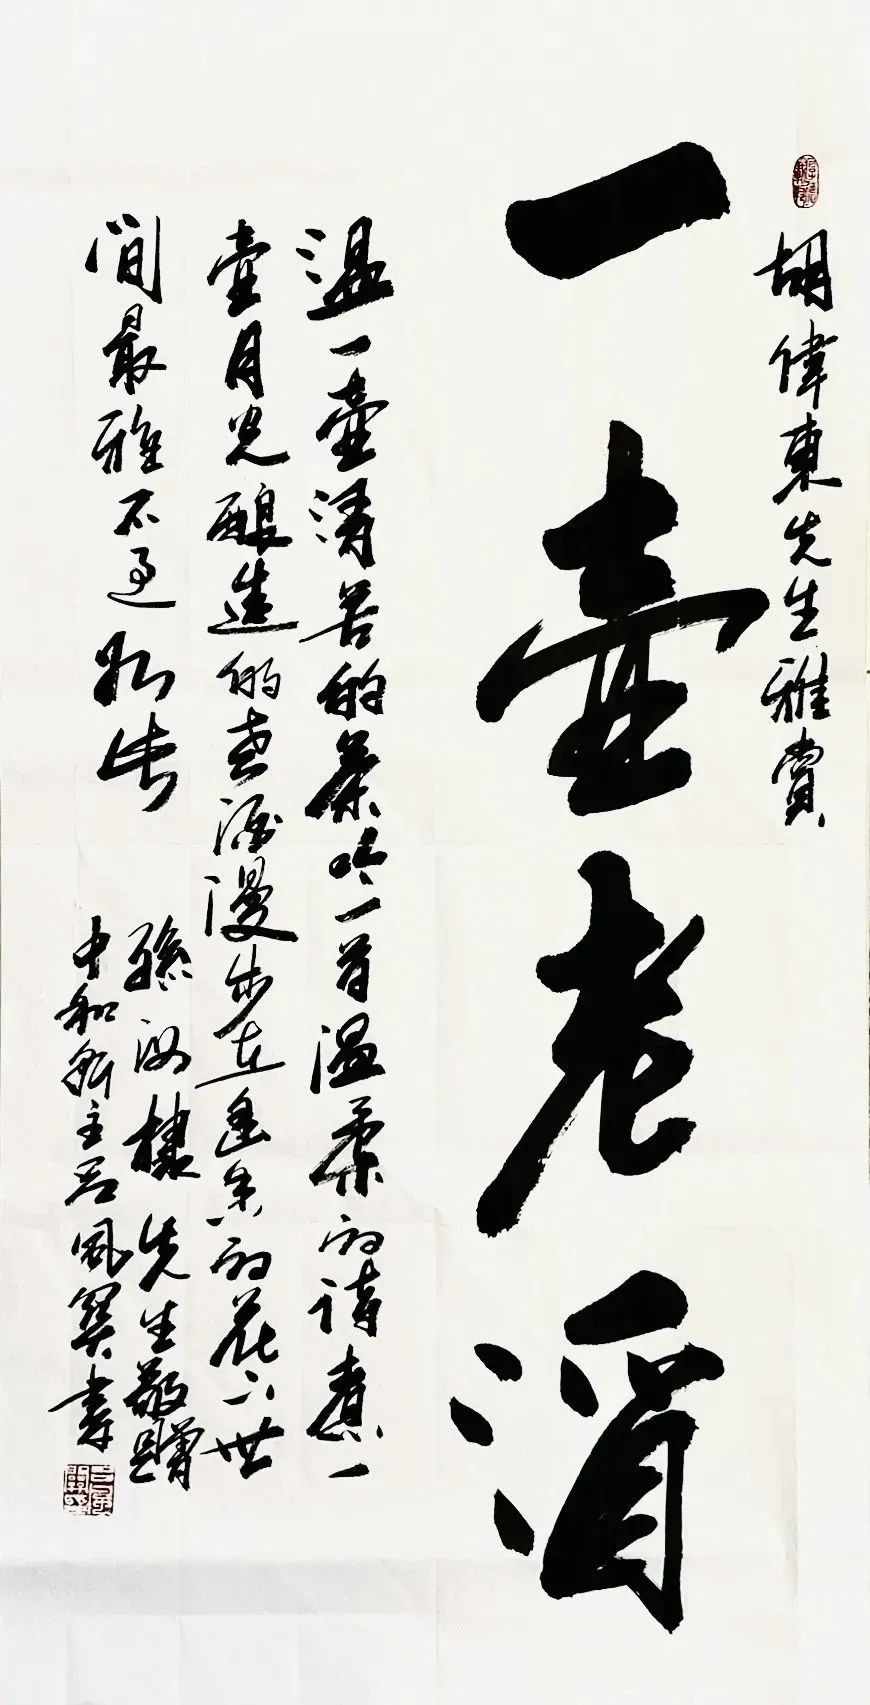 胡偉東先生雅賞
一壺老酒
温一壺清苦的茶吟一首温柔的诗煮一
壺月光酿造的老酒漫步在幽香的花下世
間最雅不過如此
孫棣先生敬贈
中和齋主吕風書